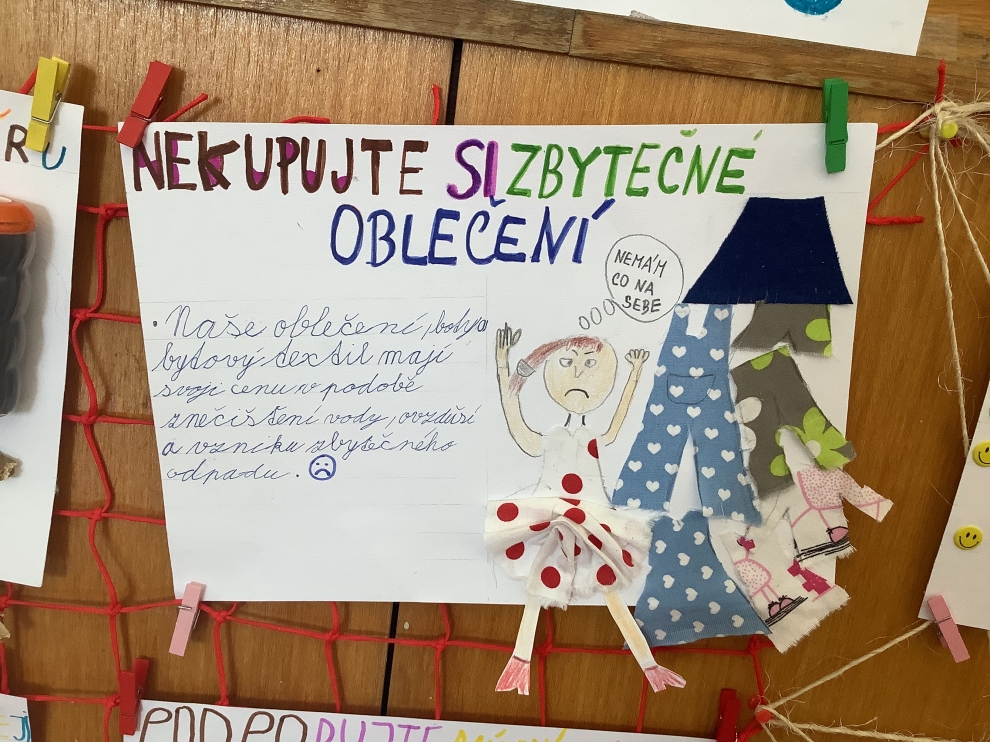 NEKUPUJTE SI ZBYTEČNÉ
OBLEČENÍ
NEMÁM
CO NA
SEBE
• Naše oblečení, boty a
bytový textil mají
svoji cenu v podobě
znečištení vody, ovzduší
a vzniku zbytečného
odpadu.